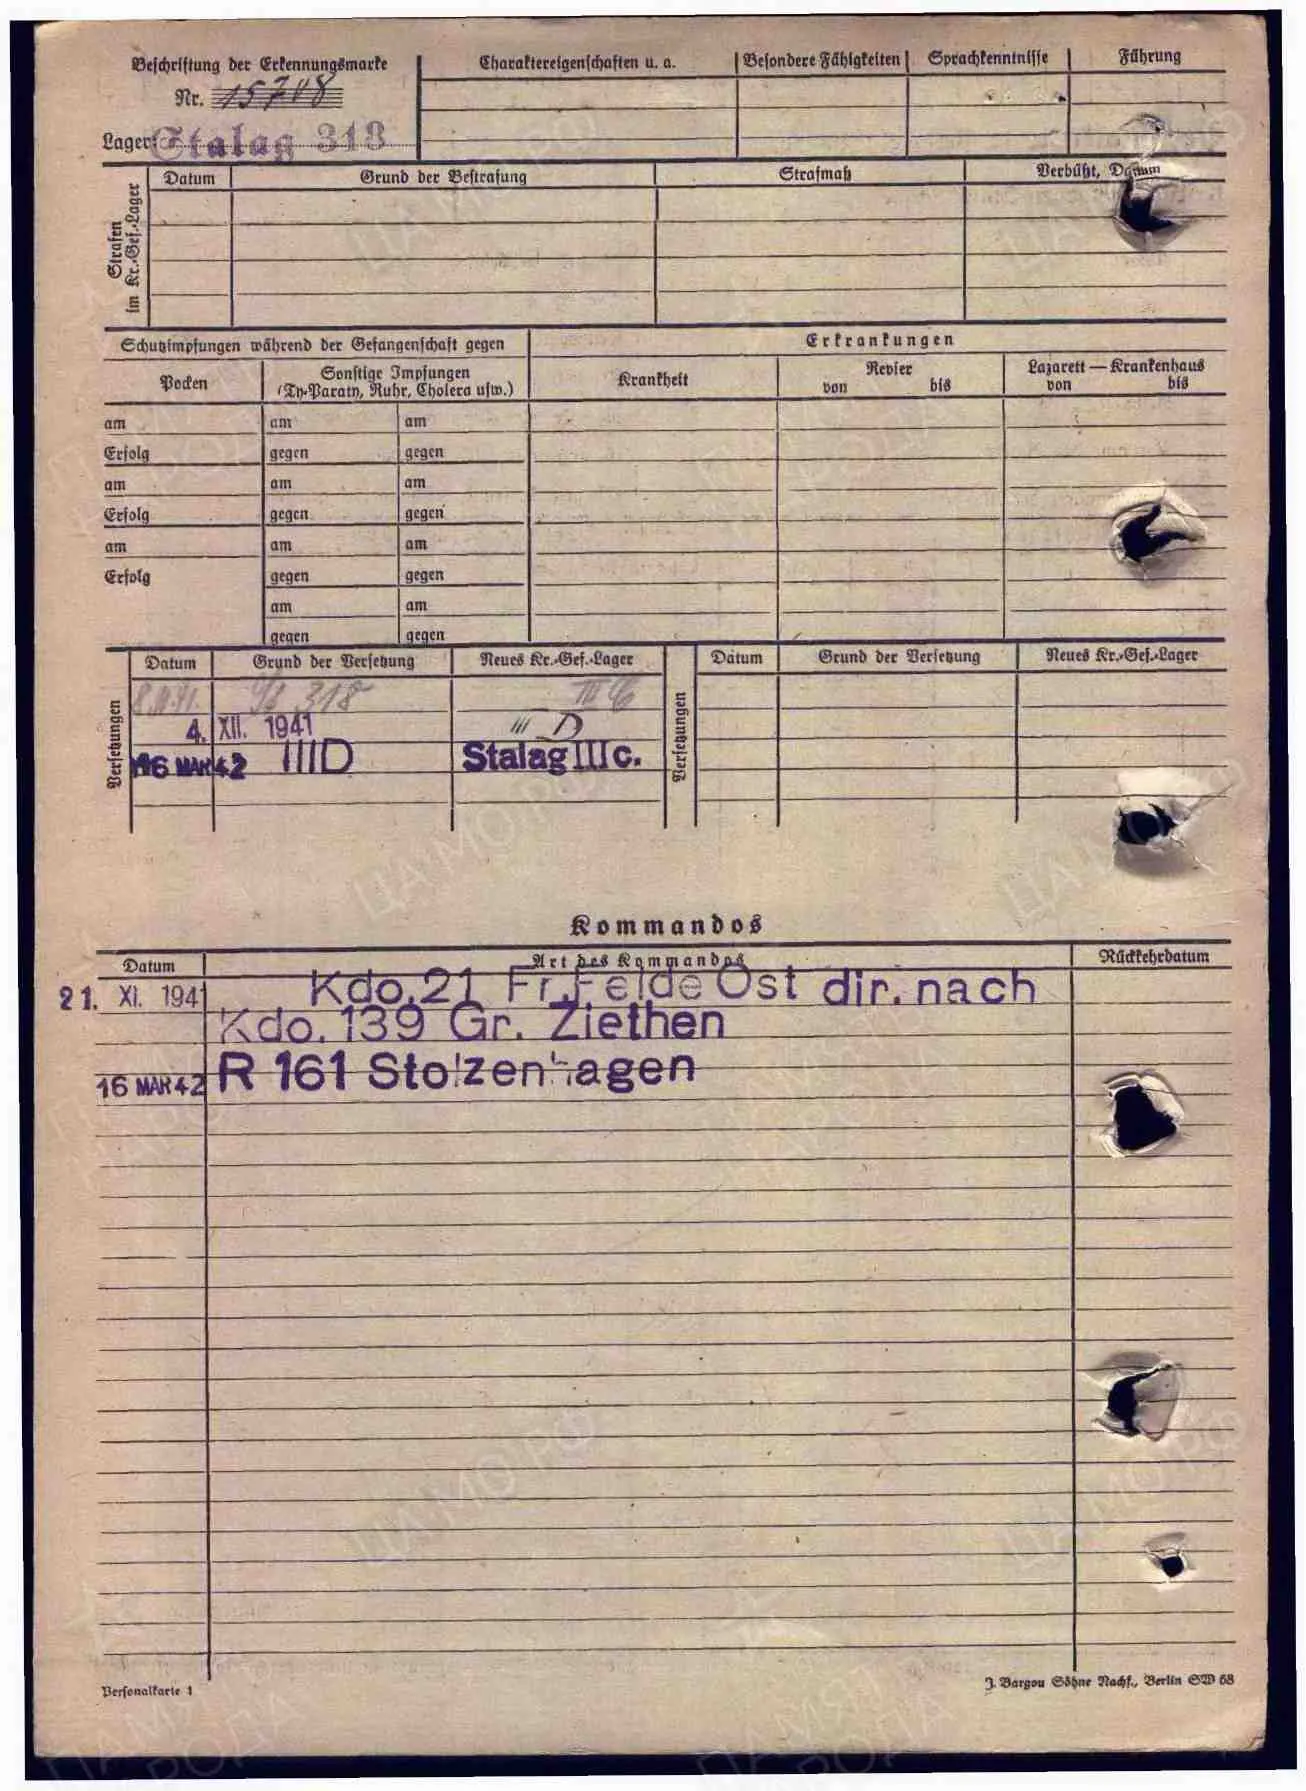 Beschriftung der Erkennungsmarke
Nr. 15708
Lager: Stalag 318
Charaktereigenschaften u. a.
Besondere Fähigkeiten
Sprachkenntnisse
Führung
Strafen im Kr.-Gef.-Lager
Datum Grund der Bestrafung Strafmaß Verbüßt, Datum
Schutzimpfungen während der Gefangenschaft gegen
Erkrankungen
Pocken
Sonstige Impfungen
(Ty.-Paraty, Ruhr, Cholera usw.)
Krankheit
Revier
von bis
Lazarett — Krankenhaus
von bis
am am am
Erfolg gegen gegen
am am am
Erfolg gegen gegen
am am am
Erfolg gegen gegen
am am
gegen gegen
Versetzungen
Datum Grund der Versetzung Neues Kr.-Gef.-Lager
318 III C
4. XII. 1941 III D
16 MAR 42 III D Stalag III c.
Versetzungen
Datum Grund der Versetzung Neues Kr.-Gef.-Lager
Kommandos
Datum Art des Kommandos Rückkehrdatum
21. XI. 1941 Kdo. 21 Fr. Felde Ost dir. nach
Kdo. 139 Gr. Ziethen
16 MAR 42 R 161 Stolzenhagen
Personalkarte 1
J. Bargou Söhne Nachf., Berlin SW 68
ЦАМО РФ
ПАМЯТЬ НАРОДА